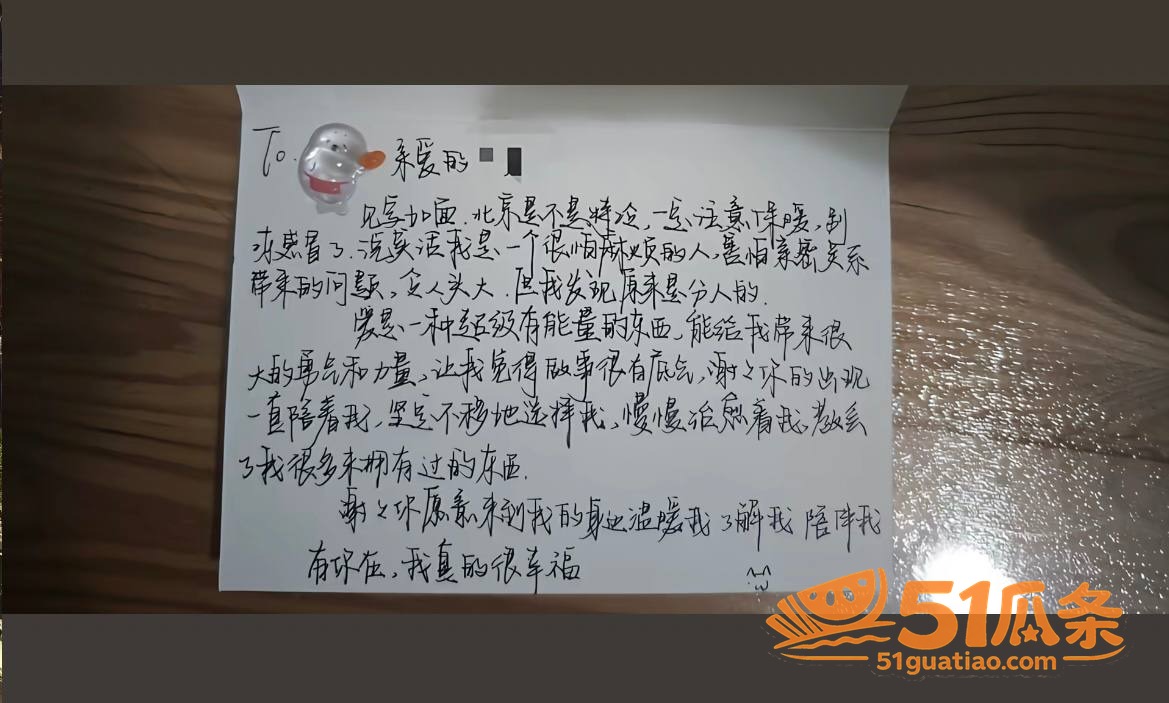 To. 亲爱的
见字如面.北京是不是特冷,一定注意保暖,别
冻感冒了.说实话我是一个很怕麻烦的人,害怕亲密关系
带来的问题,令人头大.但我发现原来是分人的.
爱是一种超级有能量的东西,能给我带来很
大的勇气和力量,让我觉得做事很有底气,谢谢你的出现
一直陪着我,坚定不移地选择我,慢慢治愈着我,教会
了我很多未拥有过的东西.
谢谢你愿意来到我的身边温暖我了解我 陪伴我
有你在,我真的很幸福
51瓜条
51guatiao.com